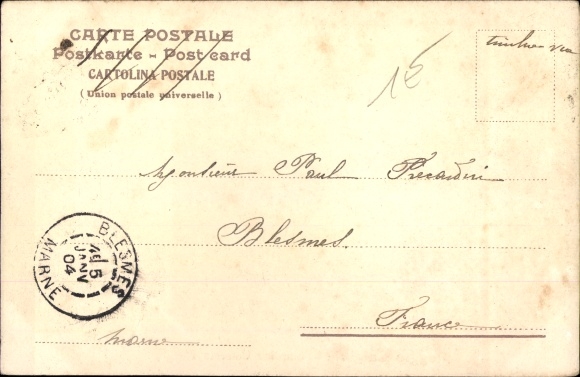 CARTE POSTALE
Postkarte - Post card
CARTOLINA POSTALE
( Union postale universelle )
1€
timbre vu
Monsieur Paul
Blesmes.
France
Marne
BLESMES
5
JANV
04
MARNE